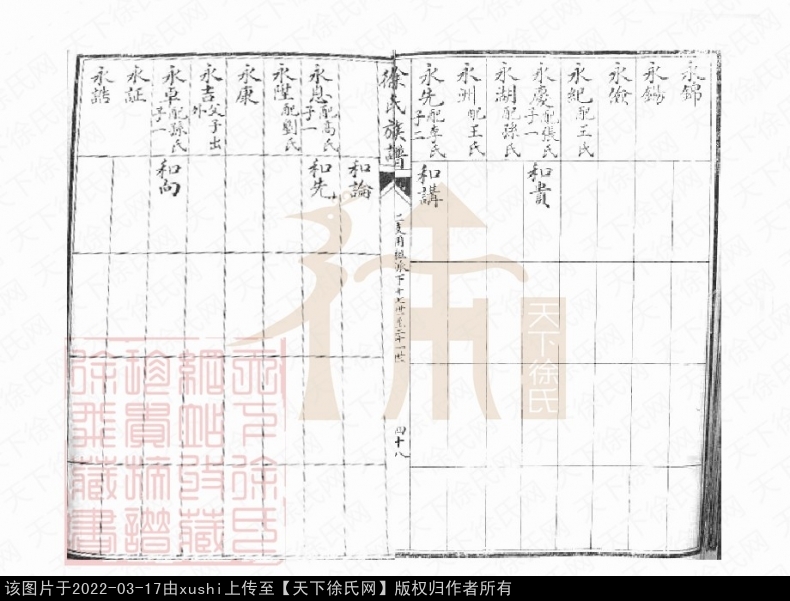 永錦
永錫
永儉
永紀配王氏
永慶配張氏子一
和貴
永湖配孫氏
永洲配王氏
永先配車氏子二
和講
徐氏族譜
四十八
和論
永息配高氏子一
和先
永陞配劉氏
永康
永吉父子出外
永卓配孫氏子一
和向
永証
永誥
天下徐氏
该图片于2022-03-17由xushi上传至【天下徐氏网】版权归作者所有